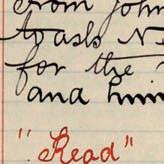 from John
to ask N
for the
and him
"Read"